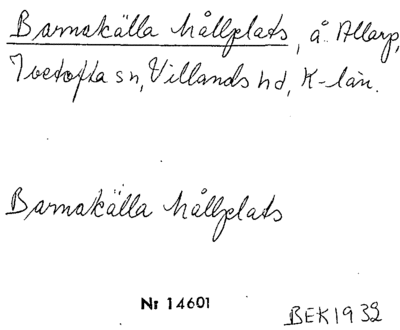 Barnakälla hållplats, å Allarp,
Ivetofta sn, Villands hd, K-län.
Barnakälla hållplats
Nr 14601
BEK 1932